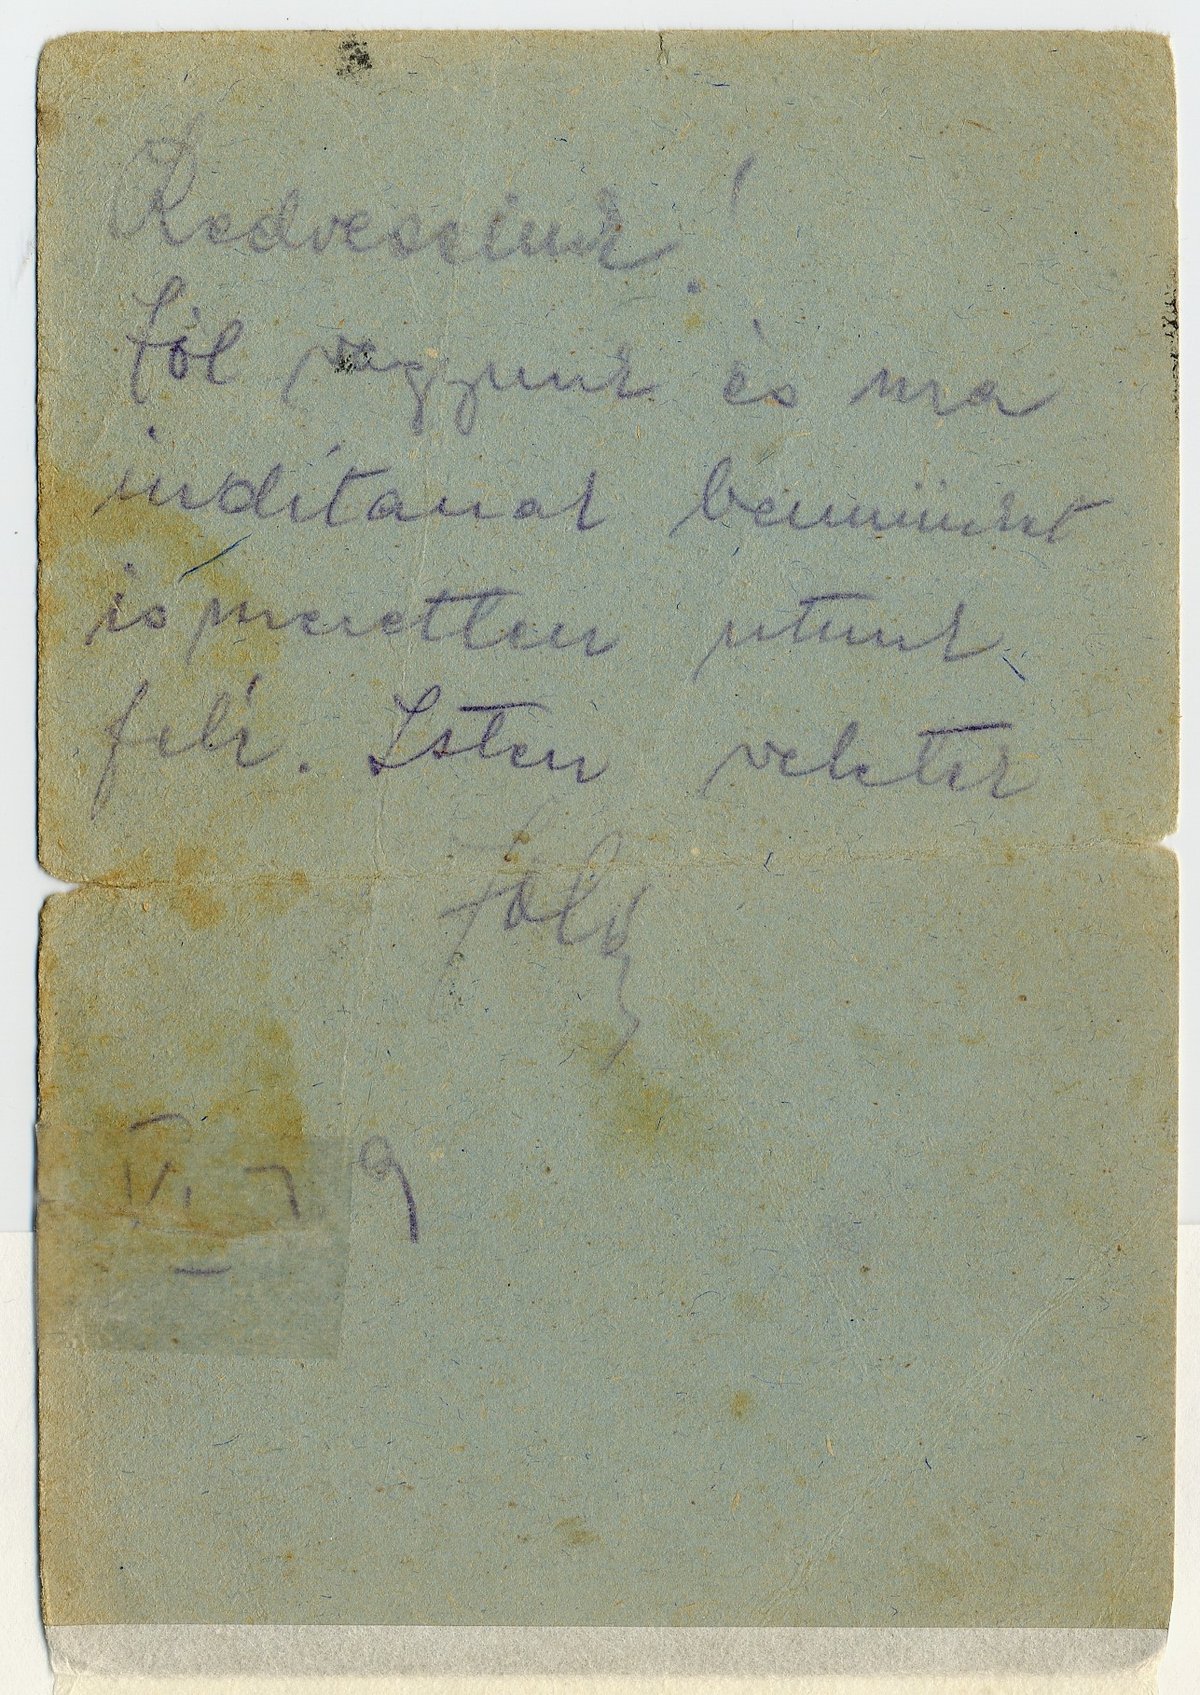 Kedveseink!
Jól vagyunk és ma
indítanak bennünket
ismeretlen utunk
felé. Isten veletek
VI. 79